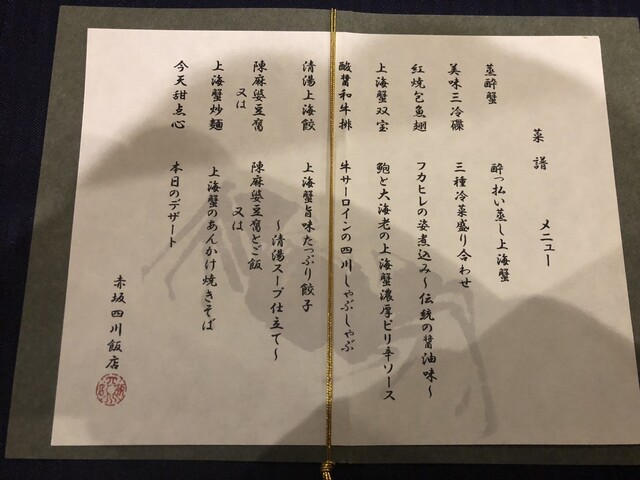 菜譜 メニュー
蒸酔蟹 酔っ払い蒸し上海蟹
美味三冷碟 三種冷菜盛り合わせ
紅焼包魚翅 フカヒレの姿煮込み～伝統の醤油味～
上海蟹双宝 鮑と大海老の上海蟹濃厚ピリ辛ソース
酸醤和牛排 牛サーロインの四川しゃぶしゃぶ
清湯上海餃 上海蟹旨味たっぷり餃子
～清湯スープ仕立て～
陳麻婆豆腐 陳麻婆豆腐とご飯
又は 又は
上海蟹炒麺 上海蟹のあんかけ焼きそば
今天甜点心 本日のデザート
赤坂四川飯店